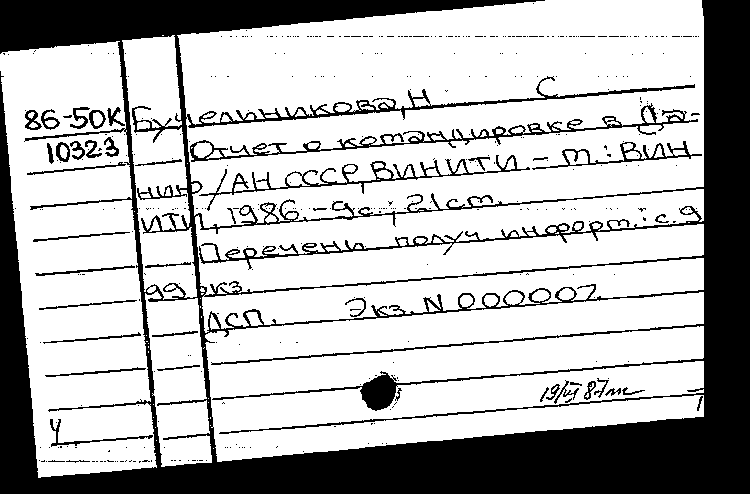 86-50К Бучельникова, Н С
10323 Отчет о командировке в Да-
нию / АН СССР, ВИНИТИ. - М. : ВИН
ИТИ, 1986. - 9 с. ; 21 см.
Перечени получ. информ.: с. 9
99 экз.
ДСП. Экз. N 000007.
19/VI 87
Ч